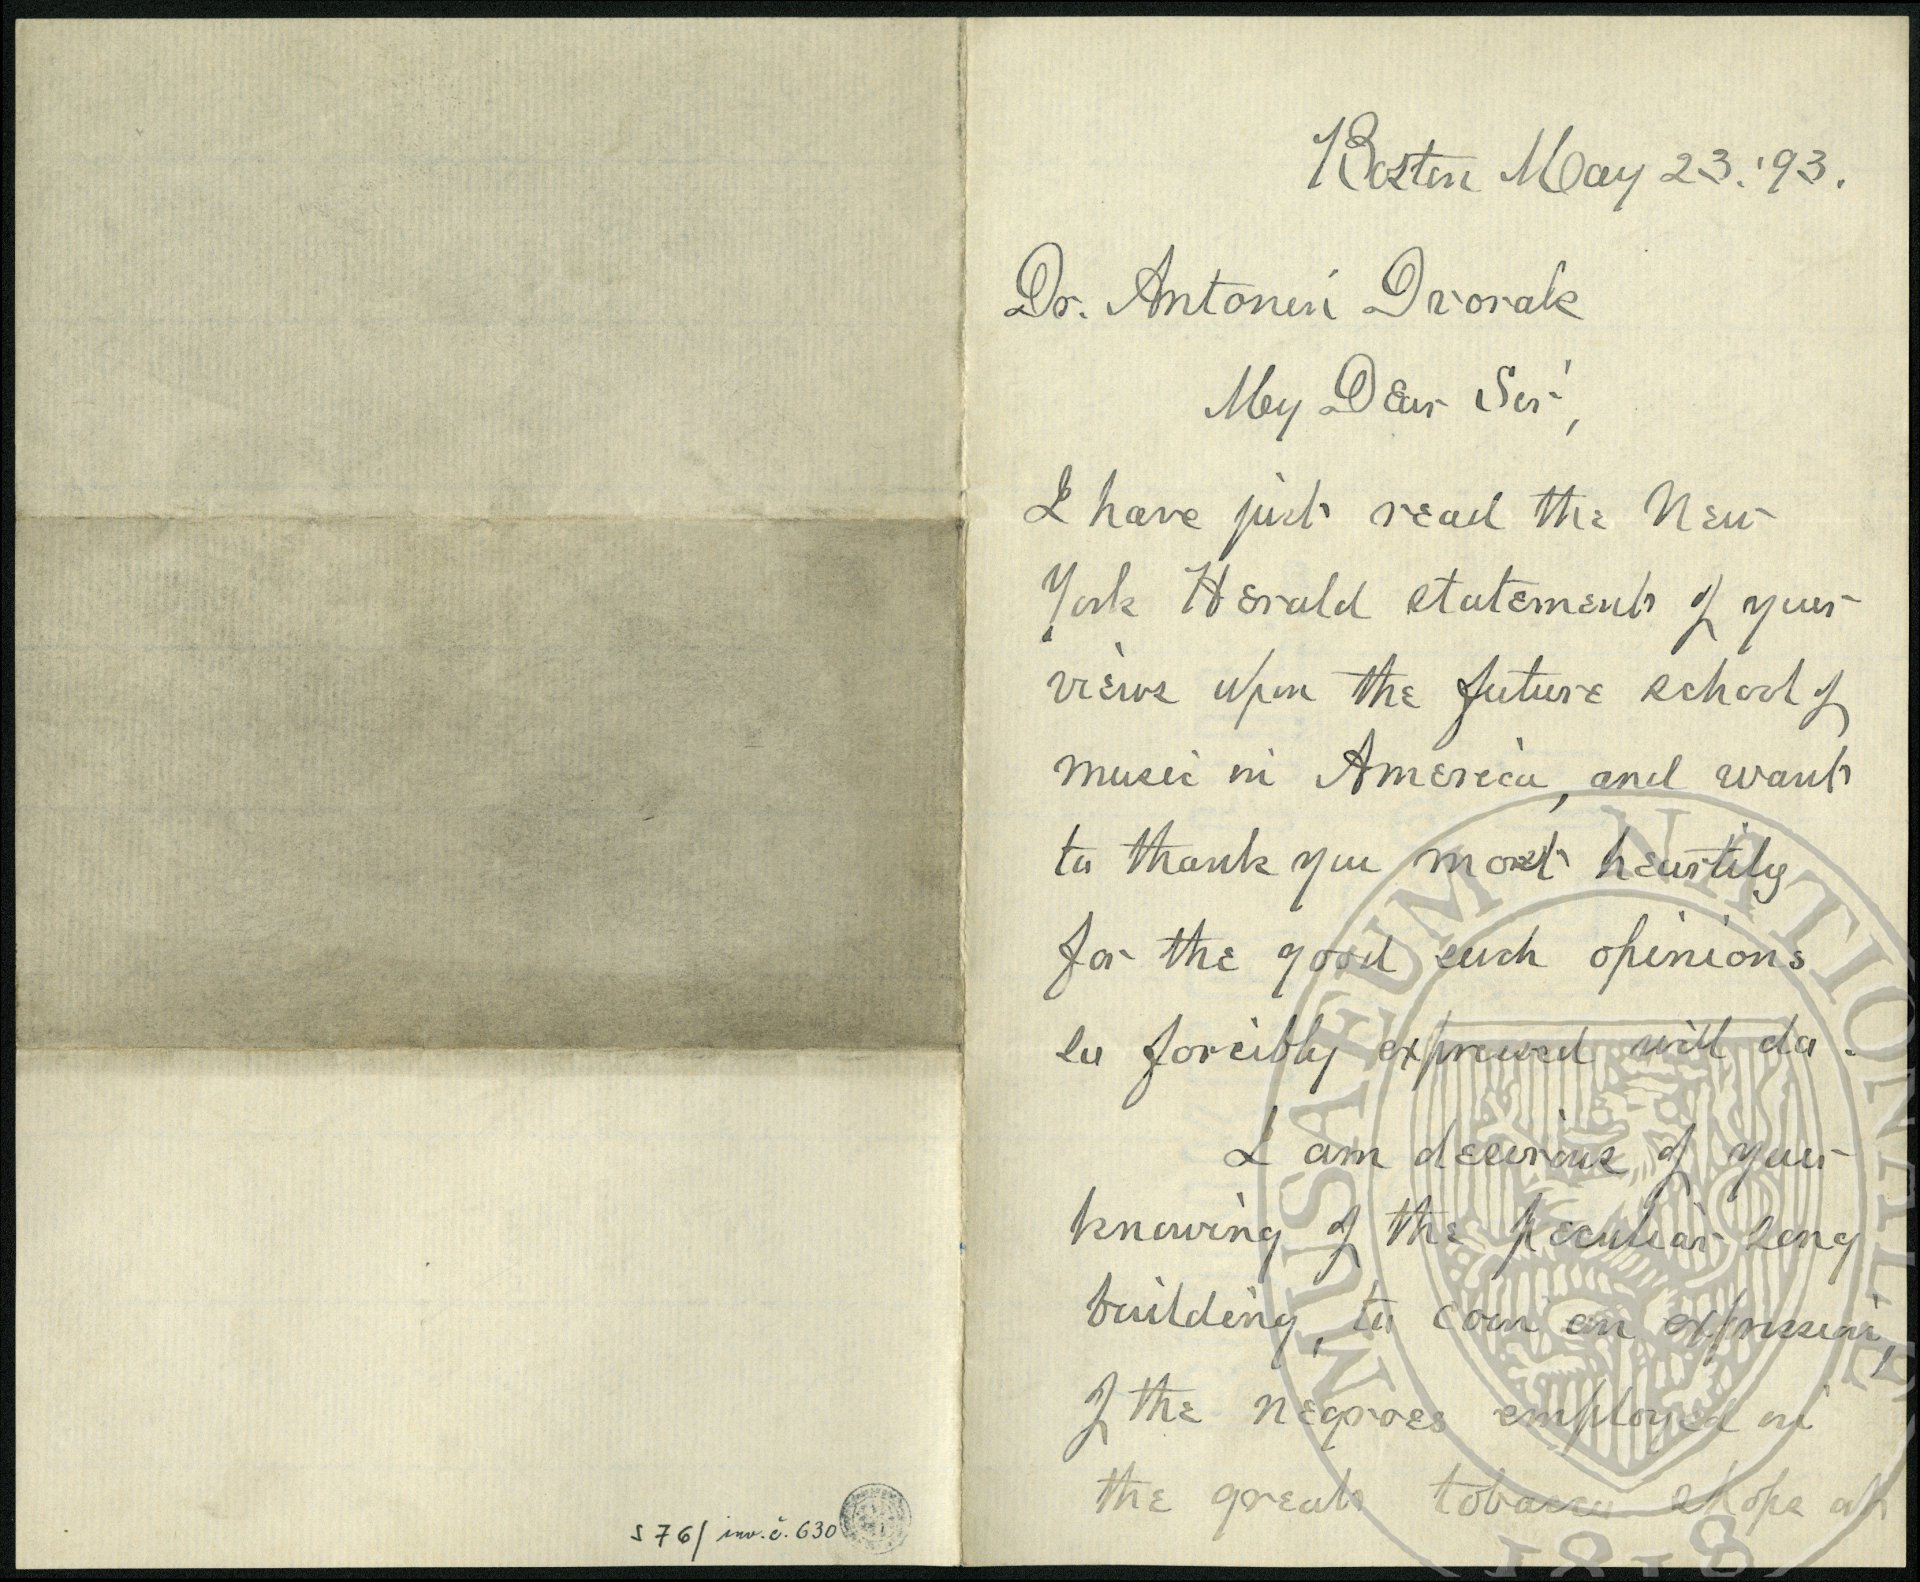 Boston May 23. '93.
Dr. Antonin Dvorak
My Dear Sir,
I have just read the New
York Herald statement of your
views upon the future school of
music in America, and want
to thank you most heartily
for the good such opinions
so forcibly expressed will do.
I am desirous of your
knowing of the peculiar song
building, to coin an expression,
of the negroes employed in
the great tobacco shops at
S 76/ inv. č. 630
MUSAEUM NATIONALE
1818